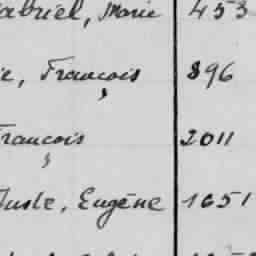 abriel, Marie 453
e, François 896
François 2011
Juste, Eugène 1651